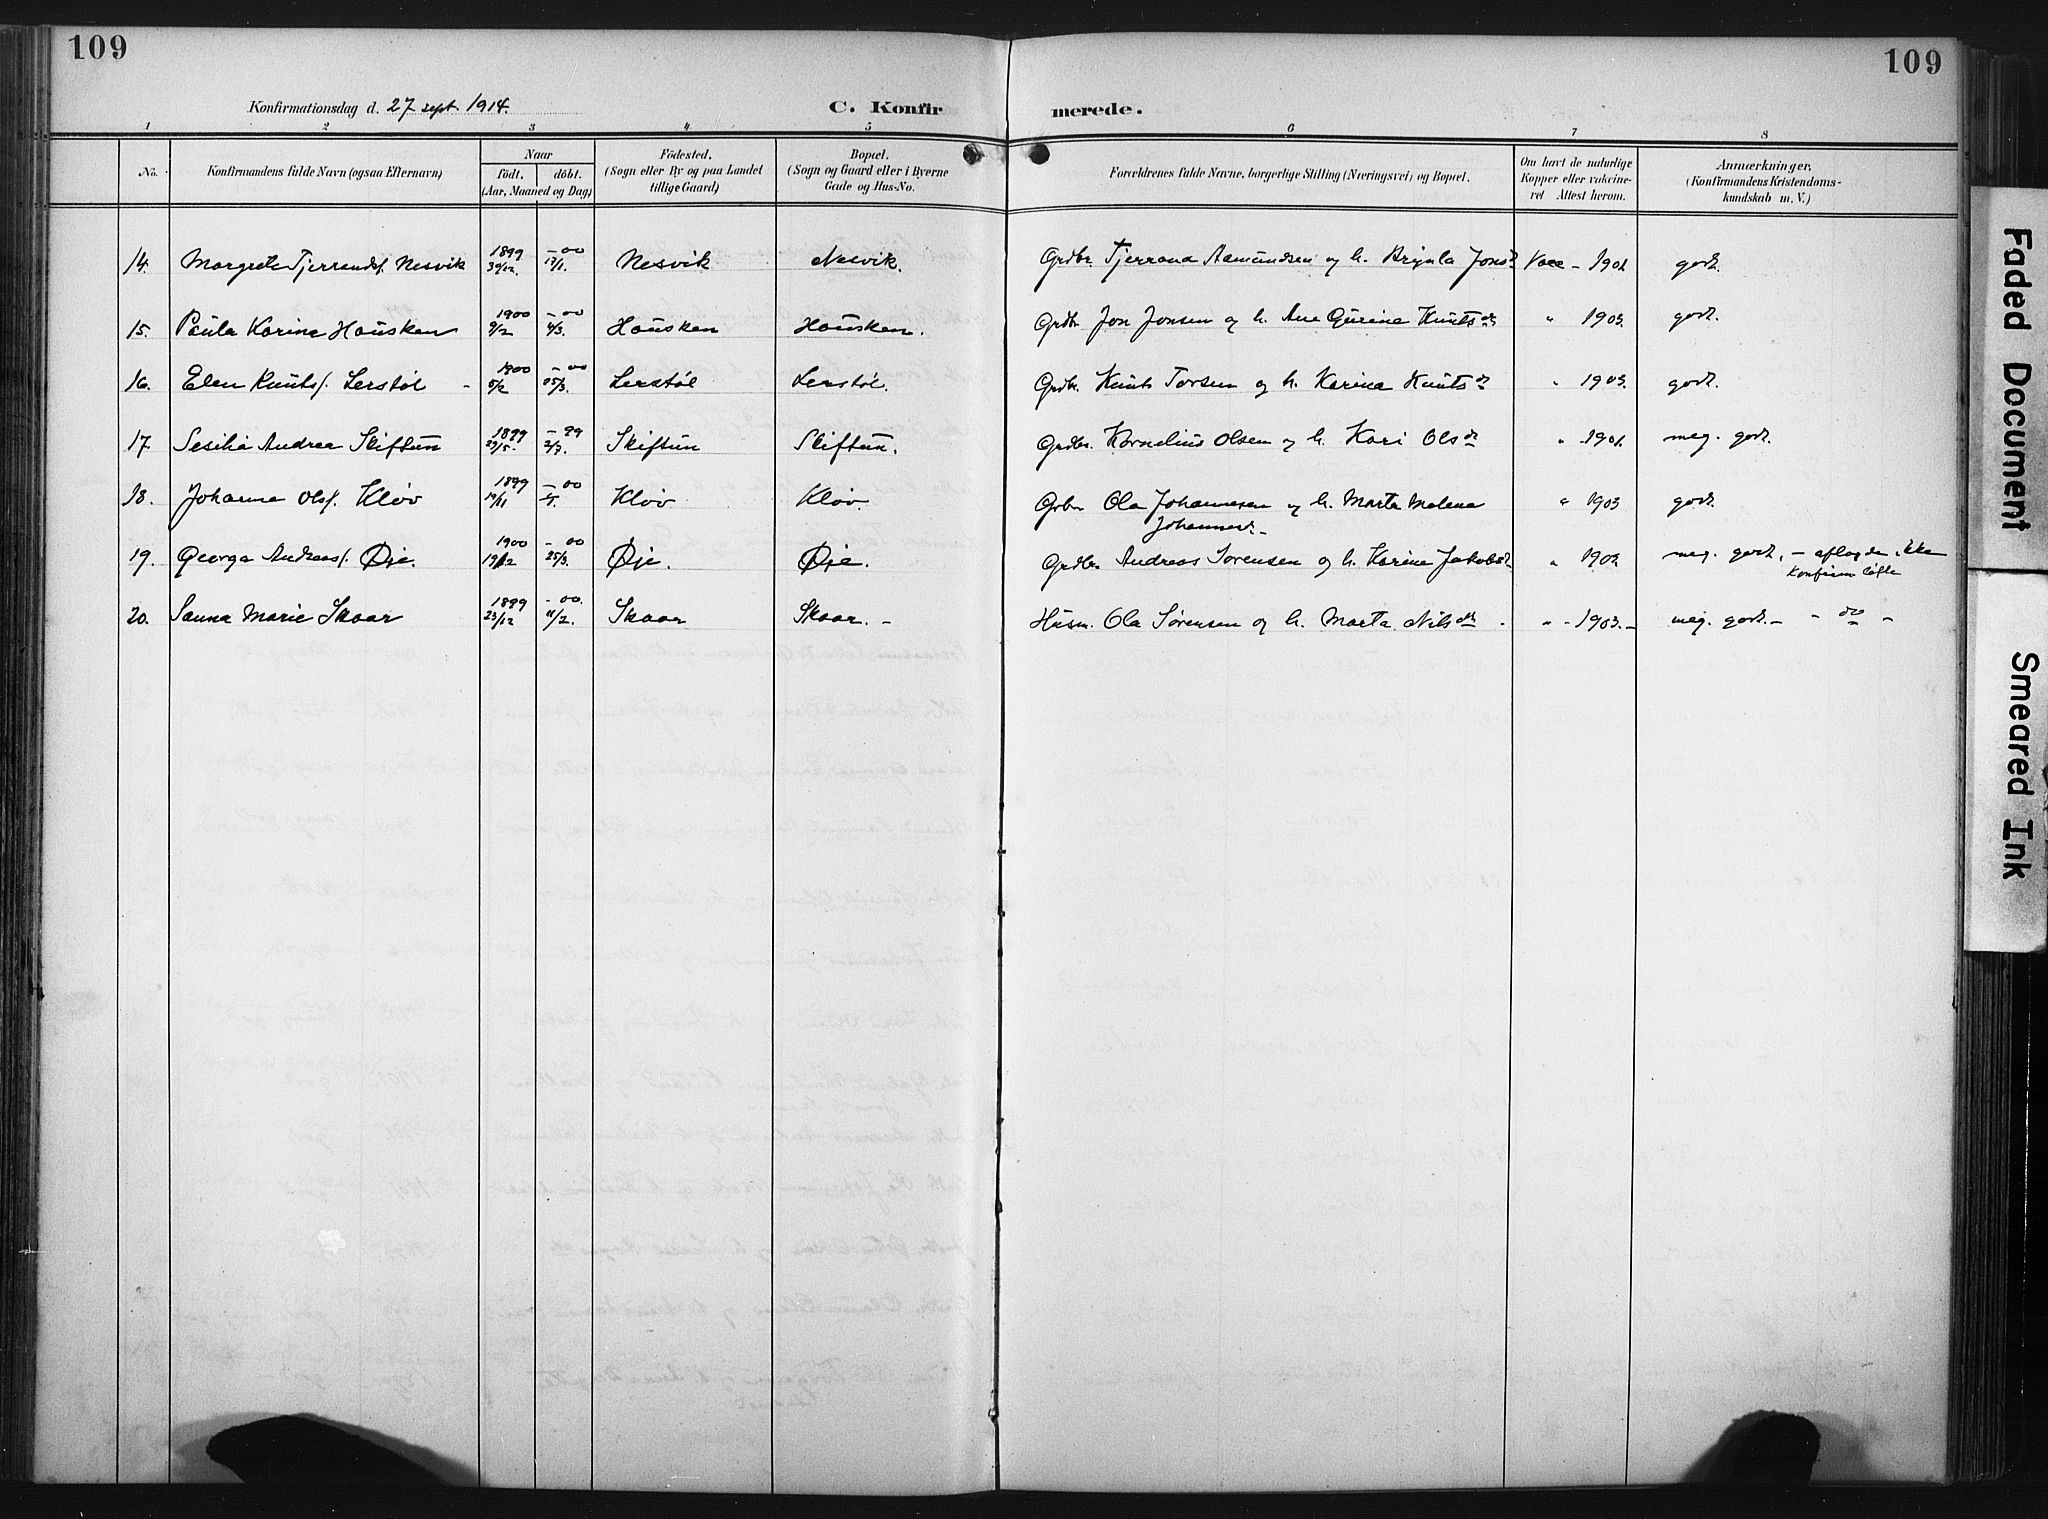 109
109
Konfirmationsdag d. 27 sept. 1914.
C. Konfir merede.
1 2 3 4 5 6 7 8
No.
Konfirmandens fulde Navn (ogsaa Efternavn)
Naar
födt. döbt.
(Aar, Maaned og Dag)
Födested.
(Sogn eller By og paa Landet
tillige Gaard)
Bopæl.
(Sogn og Gaard eller i Byerne
Gade og Hus-No.
Forældrenes fulde Navne, borgerlige Stilling (Næringsvei) og Bopæl.
Om havt de naturlige
Kopper eller vakcine-
ret Attest herom.
Anmærkninger,
(Konfirmandens Kristendoms-
kundskab m. V.)
14. Margrete Tjerrandsf. Nesvik 1899 30/12 - 00 Nesvik Nesvik. Grdbr. Tjerrand Aamundsen og h. Brynla Jonsd. Vacc - 1901 godt.
15. Paula Karina Hausken 1900 9/2 - 00 4/3. Hausken Hausken. Grdbr. Jon Jonsen og h. Ane Gurine Knutsdr „ 1903. godt.
16. Elen Knutsf. Lerstøl - 1900 5/2 - 00 25/3. Lerstøl Lerstøl. Grdbr. Knut Torsen og h. Karina Knutsdr „ 1903. godt.
17. Sesilia Andrea Skiftun 1899 29/5. - 99 2/7. Skiftun Skiftun. Grdbr. Kornelius Olsen og h. Kari Olsdr „ 1901. meg. godt.
18. Johanna Olsf. Kløv 1899 19/11 - 00 Kløv Kløv. Grbr Ola Johannesen og h. Marta Malena „ 1903 godt.
Johannesd. -
19. Georga Andreasf. Øje. 1900 19/2 - 00 25/3. Øje. Øje. Grdbr. Andreas Sørensen og h. Karine Jakobsd. „ 1902 meg. godt, - aflagde ikke
Konfirm løfte
20. Sanna Marie Skaar 1899 23/12 - 00. 11/2. Skaar Skaar. - Husm. Ola Sørensen og h. Marta Nilsdr - „ - 1903. - meg. godt. - - do -
Faded Document
Smeared Ink